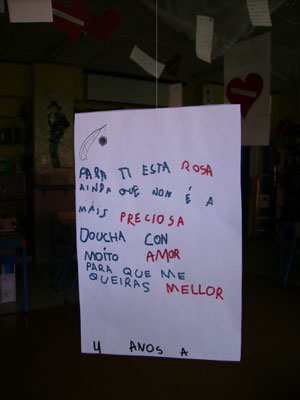 PARA TI ESTA ROSA
AINDA QUE NON É A
MÁIS PRECIOSA
DOUCHA CON
MOITO AMOR
PARA QUE ME
QUEIRAS MELLOR
4 ANOS A